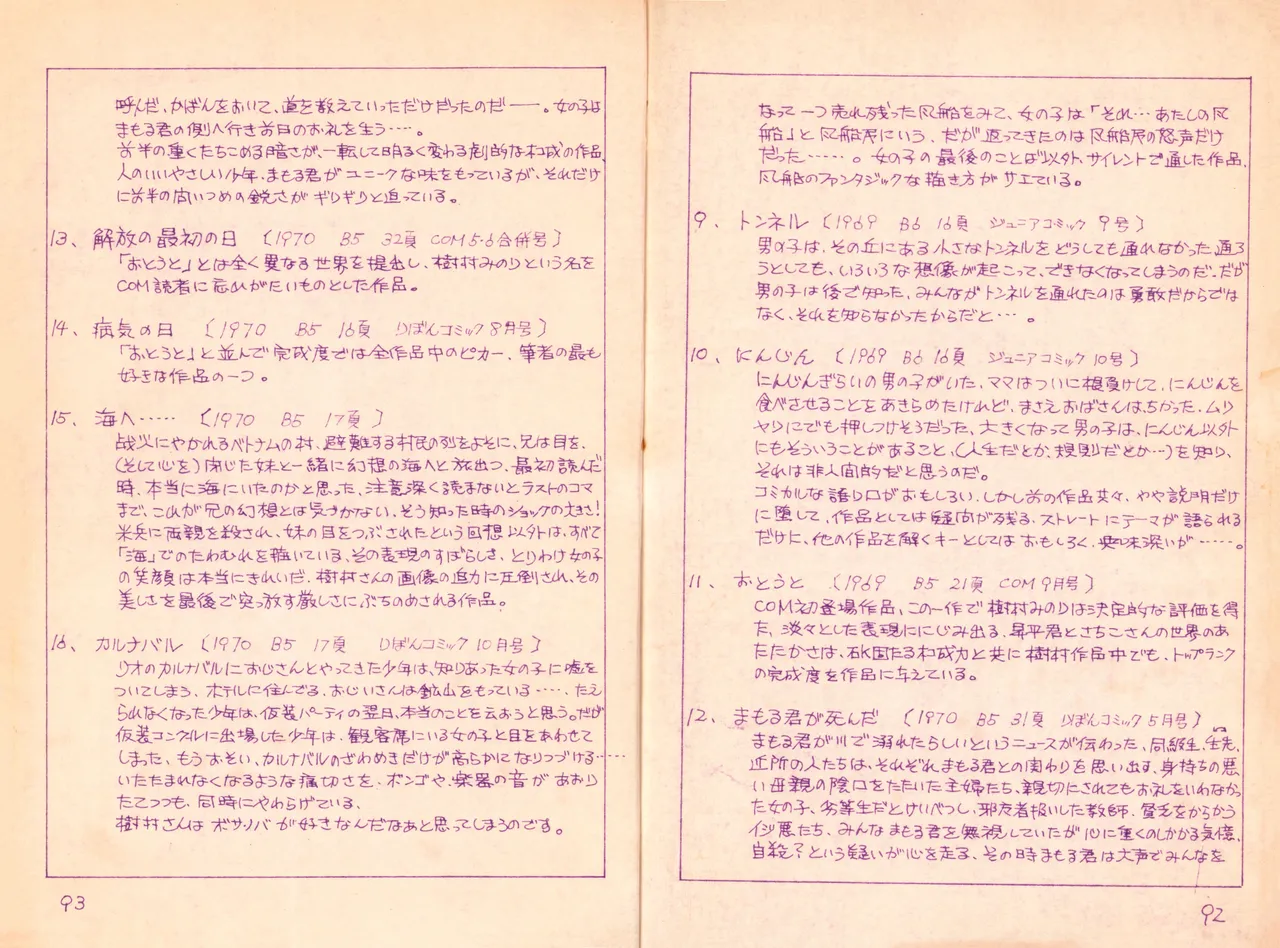 なって一つ売れ残った風船をみて、女の子は「それ…あたしの風
船」と風船屋にいう。だが返ってきたのは風船屋の怒声だけ
だった……。女の子の最後のことば以外、サイレントで通した作品。
風船のファンタジックな描き方がサエている。
9、トンネル (1969 B6 16頁 ジュニアコミック 9号)
男の子は、その丘にある小さなトンネルをどうしても通れなかった。通ろ
うとしても、いろいろな想像が起こって、できなくなってしまうのだ。だが
男の子は後で知った、みんながトンネルを通れたのは勇敢だからでは
なく、それを知らなかったからだと…。
10、にんじん (1969 B6 16頁 ジュニアコミック 10号)
にんじんぎらいの男の子がいた。ママはついに根負けして、にんじんを
食べさせることをあきらめたけれど、まさえおばさんはちがった。ムリ
ヤリにでも押しつけそうだった。大きくなって男の子は、にんじん以外
にもそういうことがあること、(人生だとか、規則だとか…)を知り、
それは非人間的だと思うのだ。
コミカルな語り口がおもしろい。しかし前の作品共々、やや説明だけ
に堕して、作品としては疑問が残る。ストレートにテーマが語られる
だけに、他の作品を解くキーとしてはおもしろく、興味深いが……。
11、おとうと (1969 B5 21頁 COM 9月号)
COM初登場作品、この一作で樹村みのりは決定的な評価を得
た。淡々とした表現ににじみ出る、昇平君とさちこさんの世界のあ
たたかさは、確固たる構成力と共に樹村作品中でも、トップランク
の完成度を作品に与えている。
12、まもる君が死んだ (1970 B5 31頁 りぼんコミック 5月号)
まもる君が川で溺れたらしいというニュースが伝わった。同級生、先生、
近所の人たちは、それぞれまもる君との関わりを思い出す。身持ちの悪
い母親の陰口をたたいた主婦たち、親切にされてもお礼をいわなかっ
た女の子、劣等生だとけいべつし、邪魔者扱いした教師、貧乏をからかう
イジ悪たち、みんなまもる君を無視していたが心に重くのしかかる気憶、
自殺?という疑いが心を走る、その時まもる君は大声でみんなを
92
呼んだ、かばんをおいて、道を教えていっただけだったのだ──。女の子は
まもる君の側へ行き前日のお礼を生う…。
前半の重くたちこめる暗さが、一転して明るく変わる劇的な構成の作品、
人のいいやさしい少年、まもる君がユニークな味をもっているが、それだけ
に前半の問いつめの鋭さがギリギリと迫っている。
13、解放の最初の日 (1970 B5 32頁 COM5・6合併号)
「おとうと」とは全く異なる世界を提出し、樹村みのりという名を
COM読者に忘れがたいものとした作品。
14、病気の日 (1970 B5 16頁 りぼんコミック8月号)
「おとうと」と並んで完成度では全作品中のピカ一、筆者の最も
好きな作品の一つ。
15、海へ…… (1970 B5 17頁)
戦火にやかれるベトナムの村、避難する村民の列をよそに、兄は目を、
(そして心を)閉じた妹と一緒に幻想の海へと旅出つ。最初読んだ
時、本当に海にいたのかと思った、注意深く読まないとラストのコマ
まで、これが兄の幻想とは気づかない、そう知った時のショックの大きさ!
米兵に両親を殺され、妹の目をつぶされたという回想以外は、すべて
「海」でのたわむれを描いている、その表現のすばらしさ、とりわけ女の子
の笑顔は本当にきれいだ。樹村さんの画像の迫力に圧倒され、その
美しさを最後で突っ放す厳しさにぶちのめされる作品。
16、カルナバル (1970 B5 17頁 りぼんコミック 10月号)
リオのカルナバルにおじさんとやってきた少年は、知りあった女の子に嘘を
ついてしまう、ホテルに住んでる、おじいさんは鉱山をもっている……、たえ
られなくなった少年は、仮装パーティの翌日、本当のことを云おうと思う。だが
仮装コンクルに出場した少年は、観客席にいる女の子と目をあわせて
しまった、もうおそい、カルナバルのざわめきだけが高らかになりつづける……
いたたまれなくなるような痛切さを、ボンゴや、楽器の音があおり
たてつつも、同時にやわらげている。
樹村さんはボサノバが好きなんだなあと思ってしまうのです。
93